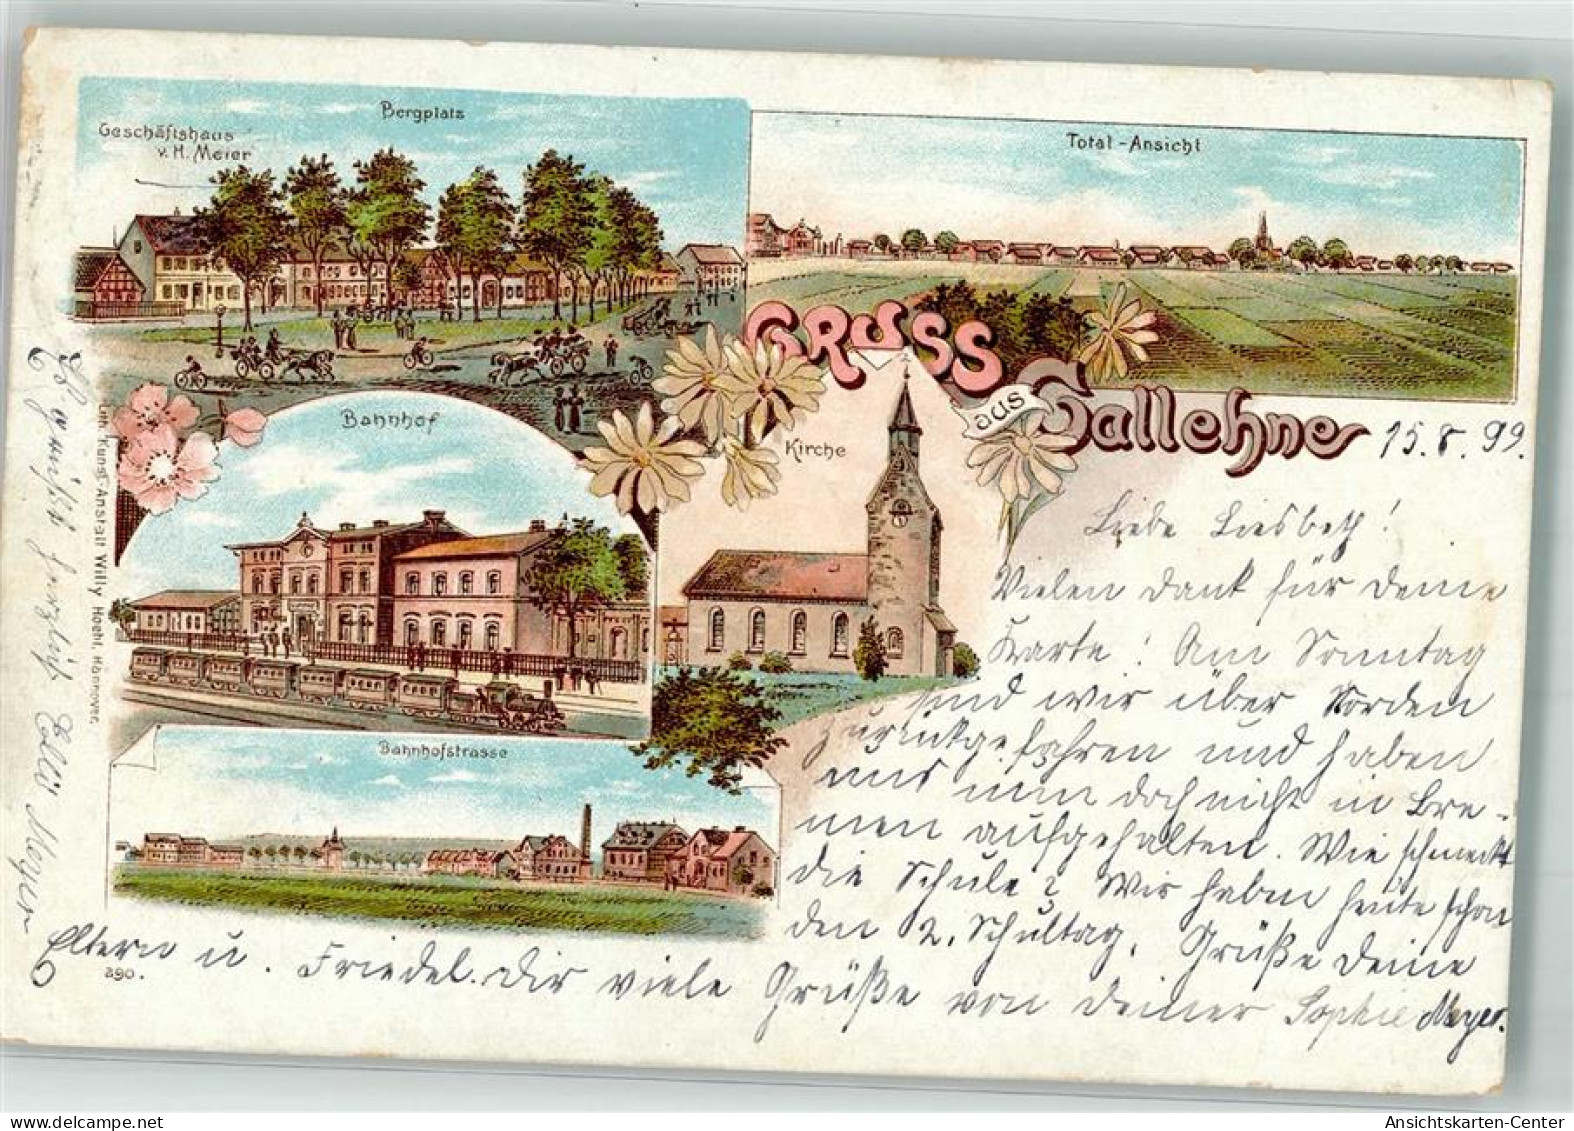 Bergplatz
Geschäftshaus
v. H. Meier
Total-Ansicht
GRUSS
aus
Sallehne
Bahnhof
Kirche
Bahnhofstrasse
Kunst-Anstalt Willy Hoehl, Hannover.
290.
15.8.99.
Liebe Liesbeth!
Vielen Dank für Deine
Karte! Am Sonntag
sind wir über Norden
zurückgefahren und haben
uns nun doch nicht in Bre-
men aufgehalten. Wie schmeckt
die Schule? Wir haben heute schon
den 2. Schultag. Grüße Deine
Eltern u. Friedel. Dir viele Grüße von Deiner Sophie Meyer.
Es grüßt herzlich Meyer
www.delcampe.net
Ansichtskarten-Center